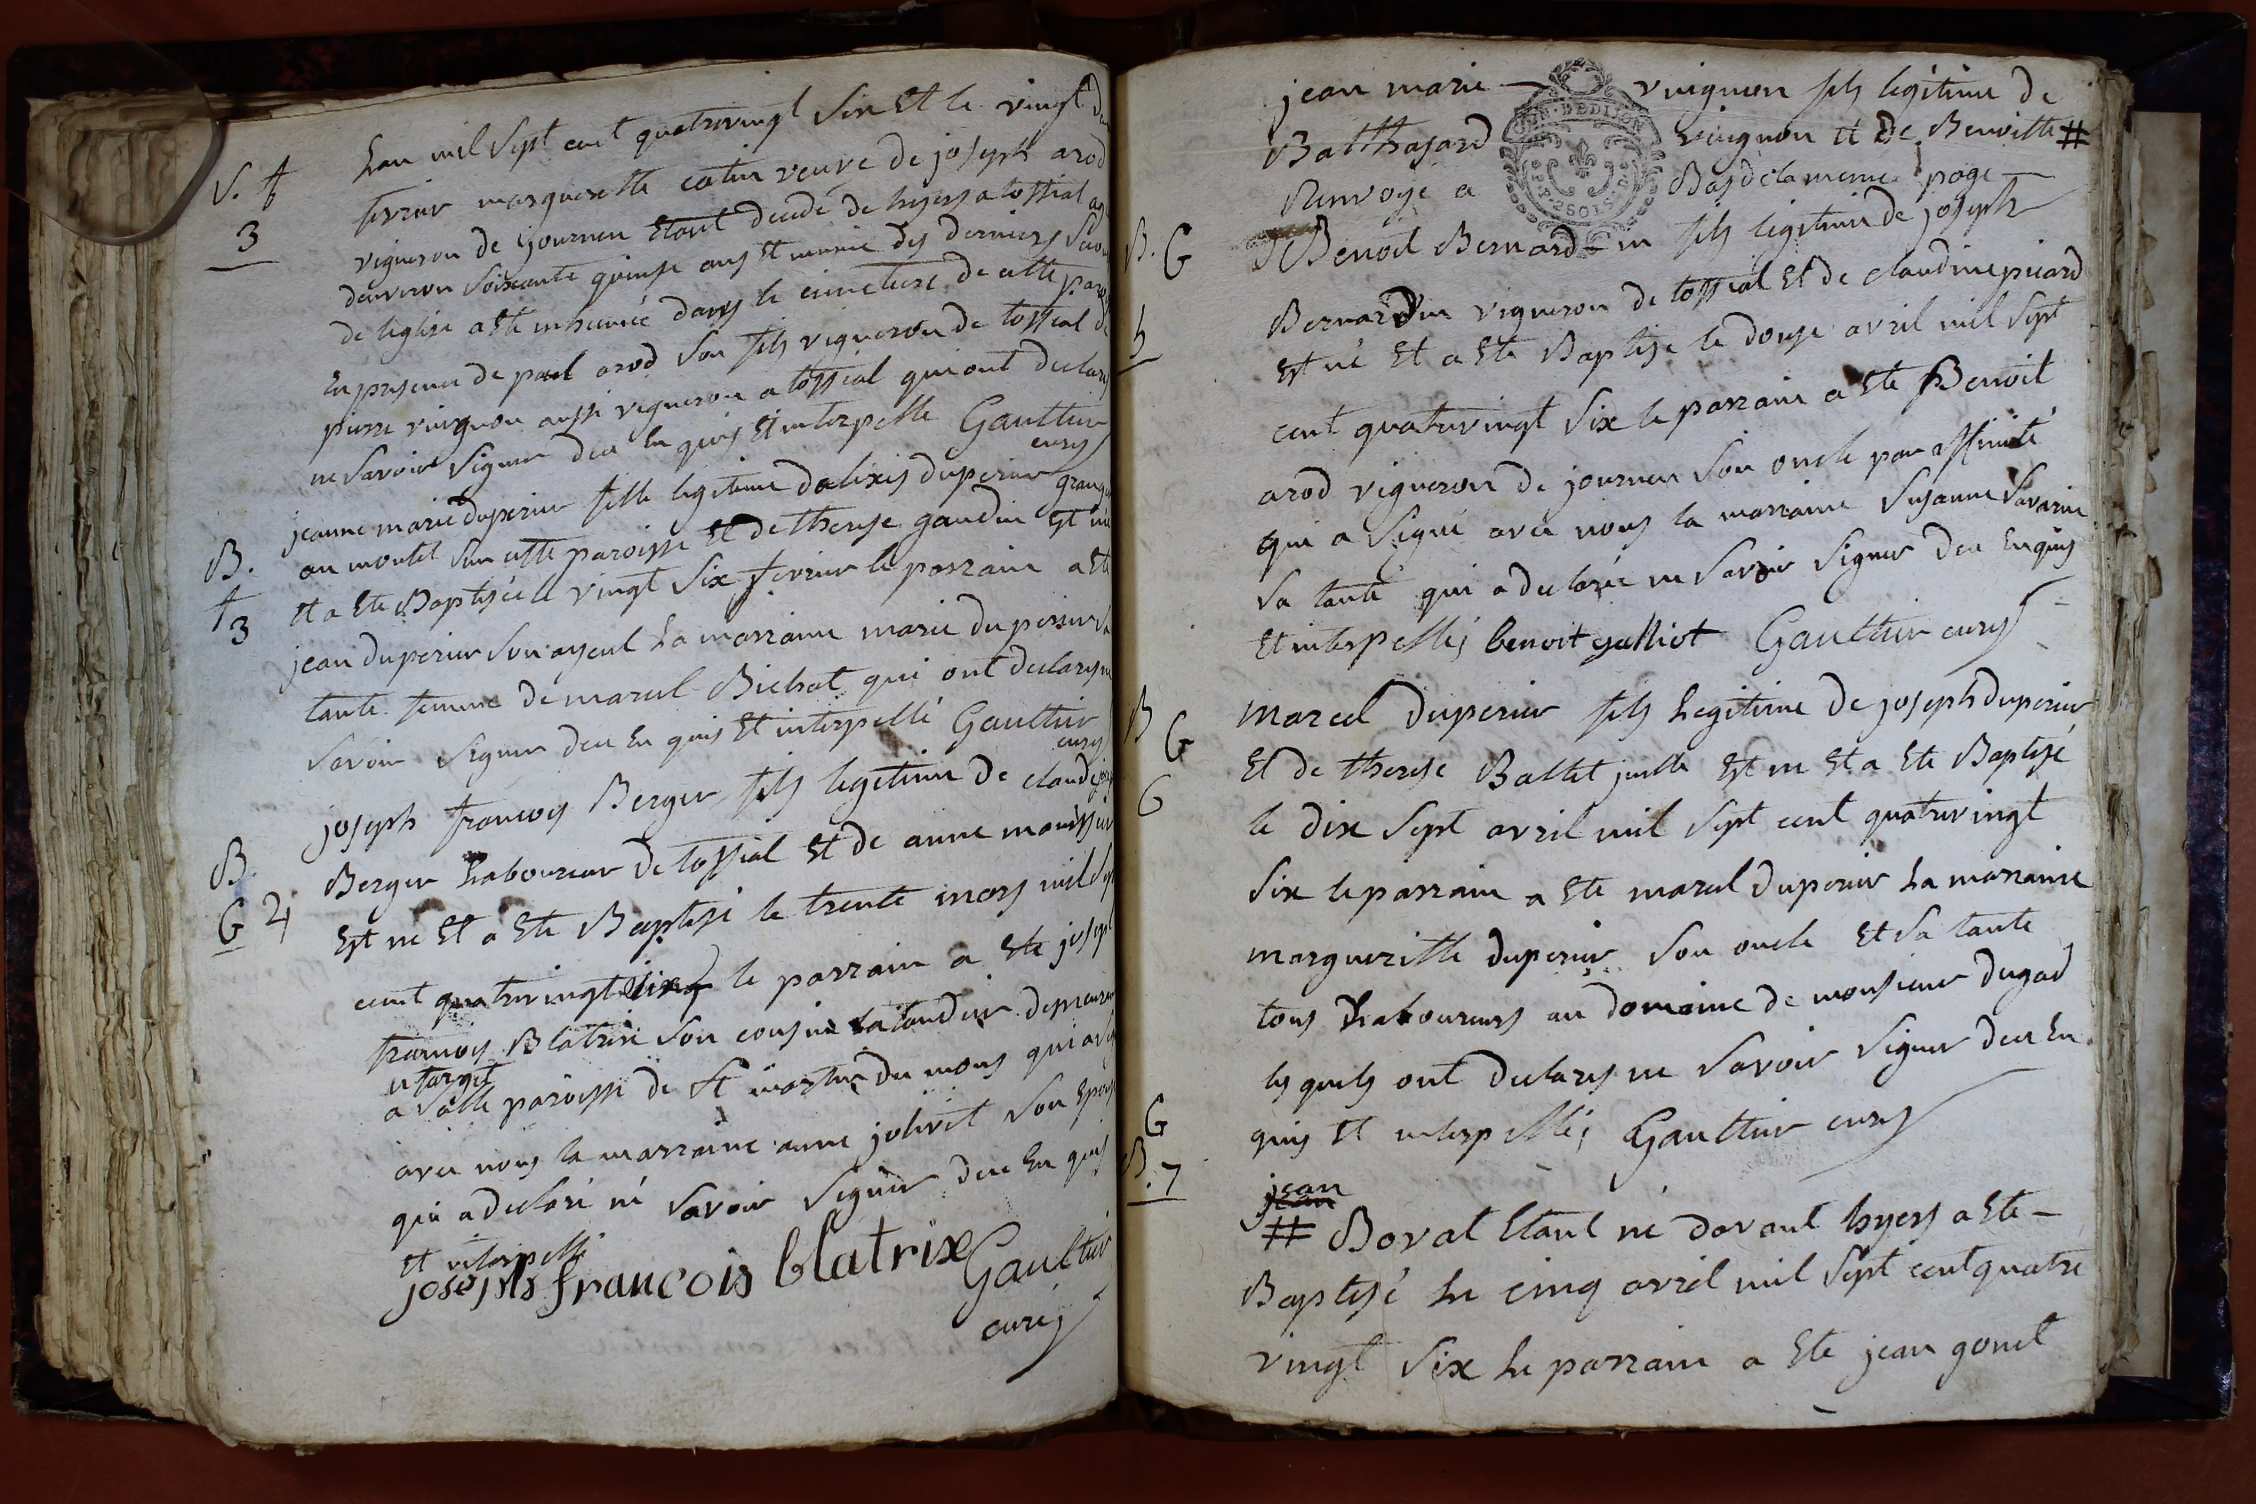 S. f
3
Lan mil sept cent quatrevingt six et le vingt
fevrier marguerette catin veuve de joseph arod
vigneron de journeu etant decede de hyers a tossial
denviron soixante quinse ans et munie des derniers
de leglise a ete inhumée dans le cimetiere de cette
en presence de paul arod son fils vigneron de tossial
pierre vuignon aussi vigneron a tossial qui ont declares
ne savoir signer deu en quis et interpelle Gaultier
cures
B.
f
3
jeanne marie duperier fille legitime dalixis duperier
au montet sur cette paroisse et de therese gaudin est née
et a ete Baptisée le vingt six fevrier le parrain a ete
jean duperier son ayeul La marraine marie duperier sa
tante femme de marcel Bichat qui ont declares ne
savoir signer deu en quis et interpellé Gaultier
cures
B.
G 4
joseph francois Berger fils legitime de claude
Berger Laboureur de tossial et de anne
est ne et a ete Baptisé le trente mars mil sept
cent quatrevingt six le parrain a ete joseph
francois Blatrix son cousin
a paroisse de St martin du mons qui a
avec nous la marraine anne jolivet son
qui a declaré ne savoir signer deu en quis
et interpellé
joseph francois blatrix Gaultier
curés
jean marie vuignon fils legitime de
Balthasard vuignon et de Benoitte #
Renvoye a Bas de la meme page
GEN. DE DIJON
2 SOLS
B. G
5
Benoit Bernard-in fils legitime de joseph
Bernardin vigneron de tossial et de claudine picard
est né et a ete Baptise le douse avril mil sept
cent quatrevingt six le parrain a ete Benoit
arod vigneron de journeu son oncle par affinité
qui a signé avec nous la marraine Susanne Savarin
sa tante qui a declarée ne savoir signer deu enquis
et interpellés benoit galliot Gaultier cures
B
G
6
marcel duperier fils Legitime de joseph duperier
et de therese Ballet juilla est ne et a ete Baptisé
le dix sept avril mil sept cent quatrevingt
six le parrain a ete marcel duperier La marraine
margueritte duperier son oncle et sa tante
tous Laboureurs au domaine de monsieur dugad
les quels ont declares ne savoir signer deu en
quis et interpellés Gaultier cures
G
B. 7
jean
jean
# Boval etant né davant hyers a ete -
Baptisé Le cinq avril mil sept cent quatre
vingt six Le parrain a ete jean gonet